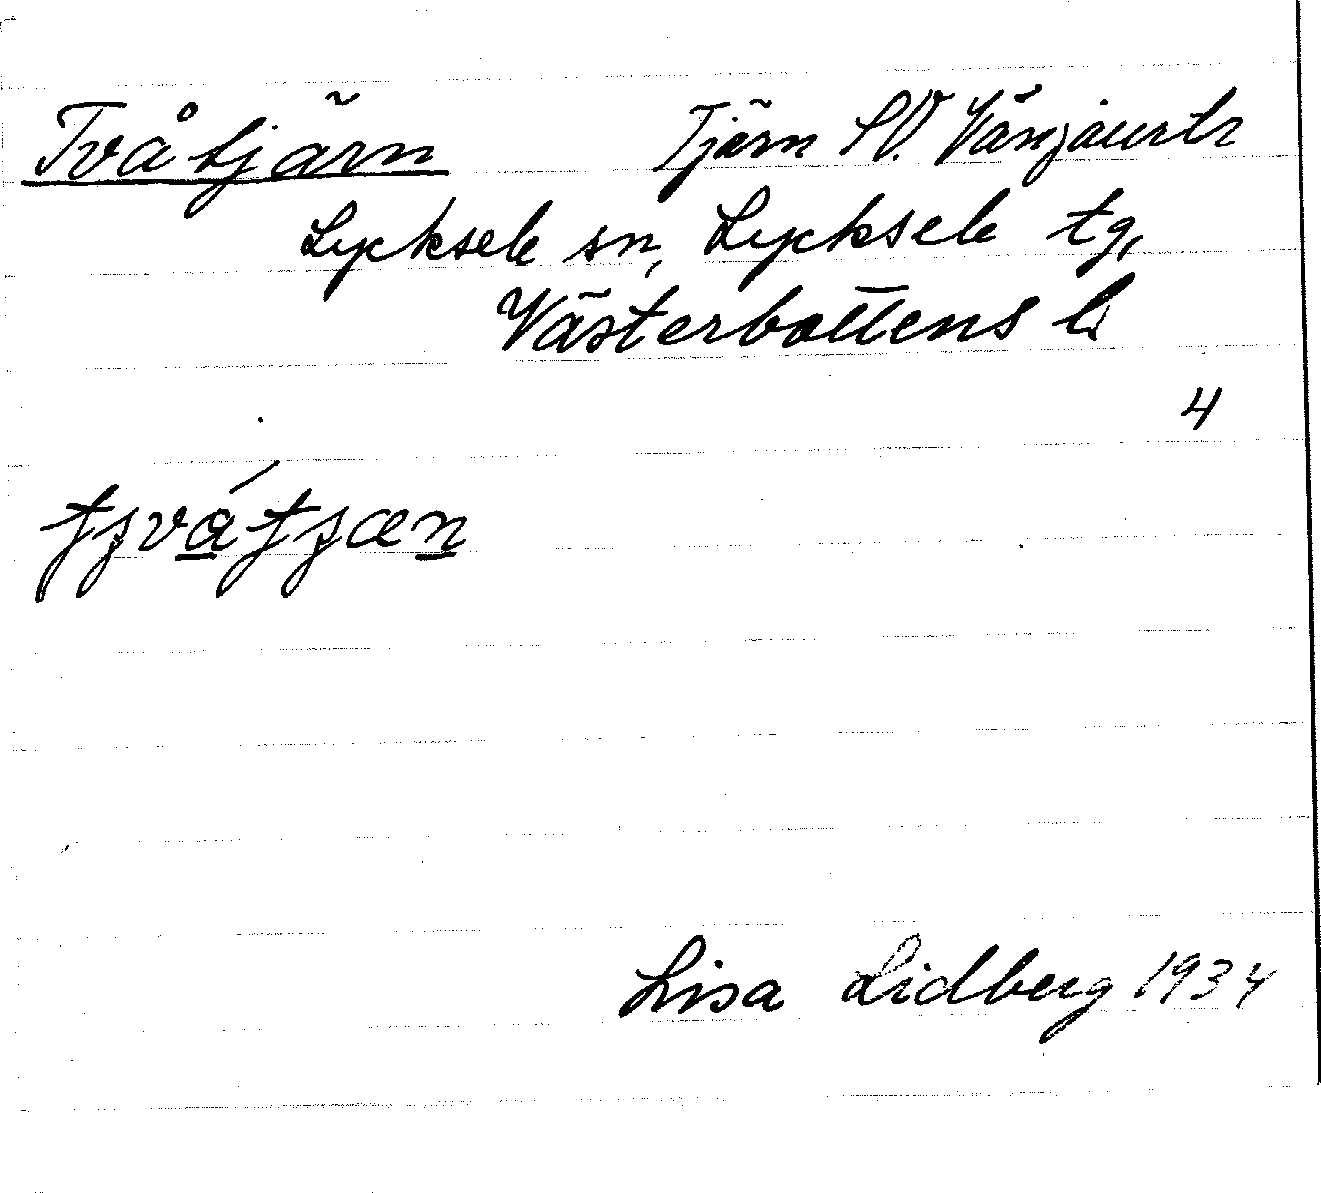 Tvåtjärn Tjärn SV. Vänjaurtr
Lycksele sn, Lycksele tg,
Västerbottens l.
4
Lisa Lidberg 1934